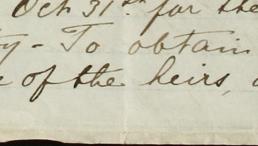 Oct 31st. for the
ty - To obtain
of the heirs,